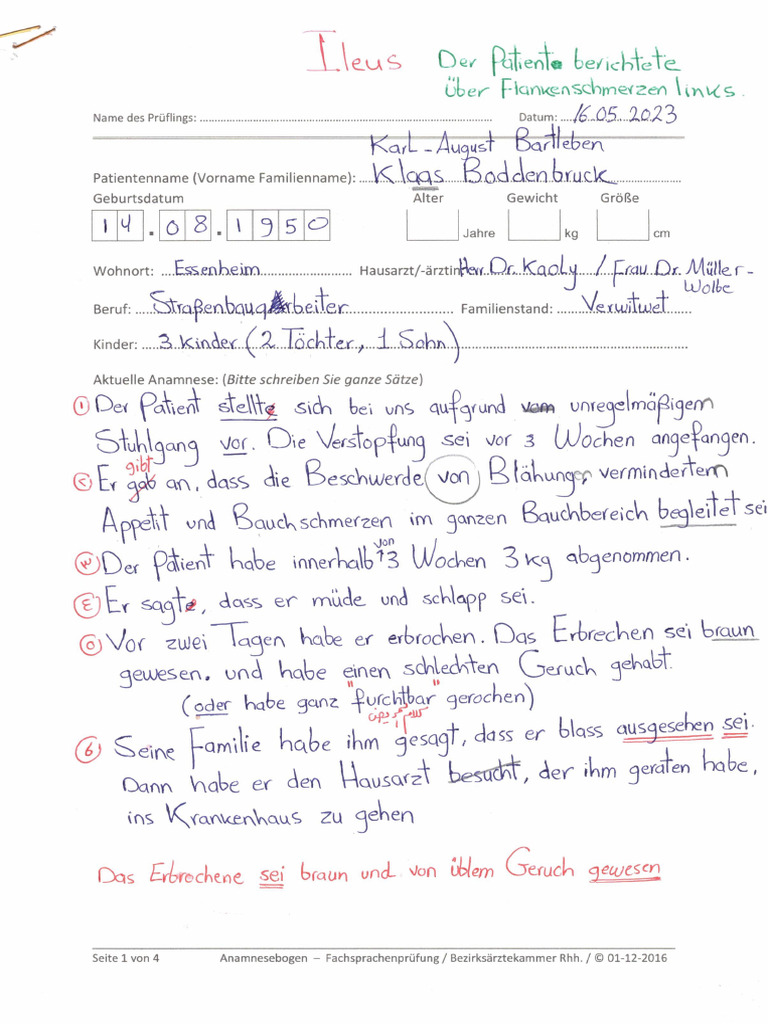 Ileus Der Patient berichtete
über Flankenschmerzen links.
Name des Prüflings: Datum: 16.05.2023
Karl-August Bartleben
Patientenname (Vorname Familienname): Klaas Boddenbruck
Geburtsdatum Alter Gewicht Größe
14.08.1950 Jahre kg cm
Wohnort: Essenheim Hausarzt/-ärztin: Herr Dr. Kaoly / Frau Dr. Müller-
Wolbe
Beruf: Straßenbauarbeiter Familienstand: Verwitwet
Kinder: 3 Kinder (2 Töchter, 1 Sohn)
Aktuelle Anamnese: (Bitte schreiben Sie ganze Sätze)
① Der Patient stellte sich bei uns aufgrund unregelmäßigem
Stuhlgang vor. Die Verstopfung sei vor 3 Wochen angefangen.
gibt
Er gab an, dass die Beschwerde von Blähung, vermindertem
Appetit und Bauchschmerzen im ganzen Bauchbereich begleitet sei
von
Der Patient habe innerhalb 3 Wochen 3 kg abgenommen.
Er sagte, dass er müde und schlapp sei.
Vor zwei Tagen habe er erbrochen. Das Erbrechen sei braun
gewesen. und habe einen schlechten Geruch gehabt.
(oder habe ganz "furchtbar" gerochen)
⑥ Seine Familie habe ihm gesagt, dass er blass ausgesehen sei.
Dann habe er den Hausarzt besucht, der ihm geraten habe,
ins Krankenhaus zu gehen
Das Erbrochene sei braun und von üblem Geruch gewesen
Seite 1 von 4 Anamnesebogen – Fachsprachenprüfung / Bezirksärztekammer Rhh. / © 01-12-2016